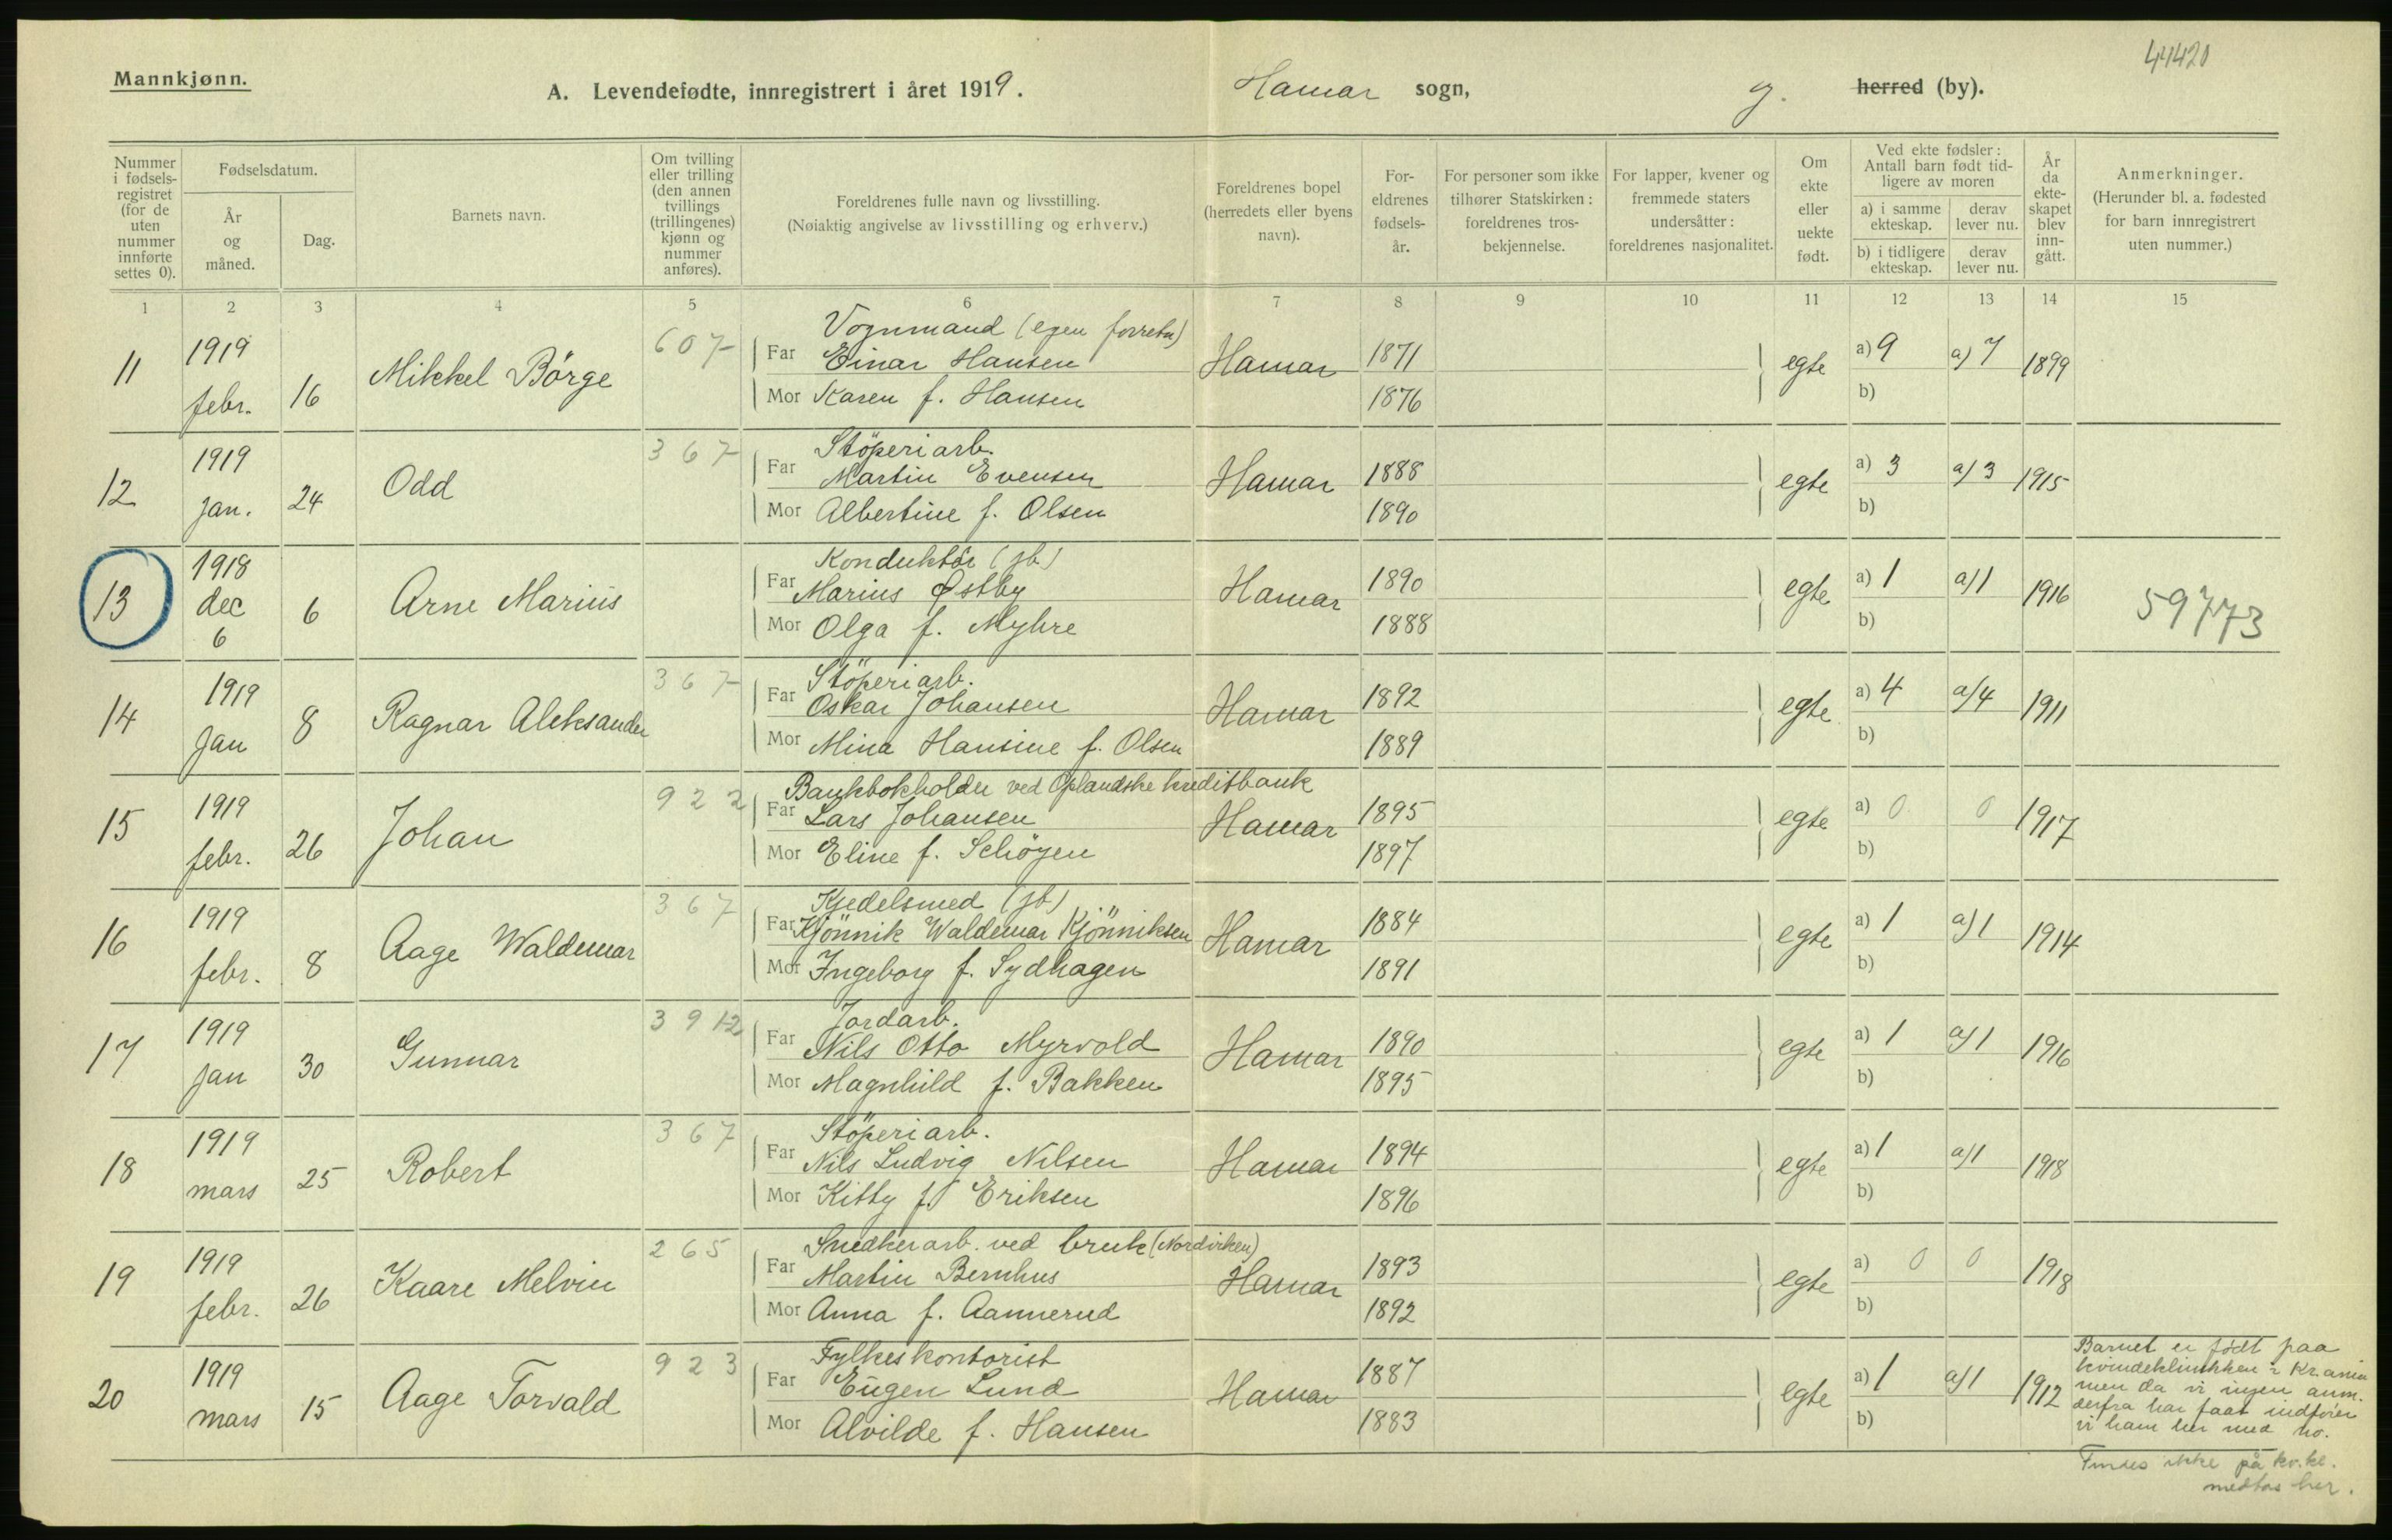 44420
Mannkjønn.
A. Levendefødte, innregistrert i året 1919.
Hamar sogn,
herred (by).
Nummer i fødsels-registret (for de uten nummer innførte settes 0).
Fødselsdatum.
År og måned.
Dag.
Barnets navn.
Om tvilling eller trilling (den annen tvillings (trillingenes) kjønn og nummer anføres).
Foreldrenes fulle navn og livsstilling.
(Nøiaktig angivelse av livsstilling og erhverv.)
Foreldrenes bopel (herredets eller byens navn).
For-eldrenes fødsels-år.
For personer som ikke tilhører Statskirken: foreldrenes tros-bekjennelse.
For lapper, kvener og fremmede staters undersåtter: foreldrenes nasjonalitet.
Om ekte eller uekte født.
Ved ekte fødsler: Antall barn født tid-ligere av moren
a) i samme ekteskap.
derav lever nu.
b) i tidligere ekteskap.
derav lever nu.
År da ekte-skapet blev inn-gått.
Anmerkninger.
(Herunder bl. a. fødested for barn innregistrert uten nummer.)
1 2 3 4 5 6 7 8 9 10 11 12 13 14 15
607
Vognmand (egen forretn)
11 1919 febr. 16 Mikkel Börge
Far Einar Hansen Hamar 1871 egte a) 9 a) 7 1899
Mor Karen f. Hansen 1876 b)
367
Stöperiarb.
12 1919 jan. 24 Odd
Far Martin Evensen Hamar 1888 egte a) 3 a) 3 1915
Mor Albertine f. Olsen 1890 b)
Konduktör (jb)
13 1918 dec 6 6 Arne Marius
Far Marius Østby Hamar 1890 egte a) 1 a) 1 1916 59773
Mor Olga f. Myhre 1888 b)
367
Stöperiarb.
14 1919 Jan 8 Ragnar Aleksander
Far Oskar Johansen Hamar 1892 egte a) 4 a) 4 1911
Mor Mina Hansine f. Olsen 1889 b)
922
Bankbokholder ved Oplandske kreditbank
15 1919 febr. 26 Johan
Far Lars Johansen Hamar 1895 egte a) 0 0 1917
Mor Eline f. Schöyen 1897 b)
367
Kjedelsmed (jb)
16 1919 febr. 8 Aage Waldemar
Far Kjönnik Waldemar Kjönniksen Hamar 1884 egte a) 1 a) 1 1914
Mor Ingeborg f. Sydhagen 1891 b)
3912
Jordarb.
17 1919 Jan 30 Gunnar
Far Nils Otto Myrvold Hamar 1890 egte a) 1 a) 1 1916
Mor Magnhild f. Bakken 1895 b)
367
Stöperiarb.
18 1919 mars 25 Robert
Far Nils Ludvig Nilsen Hamar 1894 egte a) 1 a) 1 1918
Mor Kitty f. Eriksen 1896 b)
265
Snedkerarb. ved bruk (Nordviken)
19 1919 febr. 26 Kaare Melvin
Far Martin Bernhus Hamar 1893 egte a) 0 0 1918
Mor Anna f. Aannerud 1892 b)
923
Fylkeskontorist
20 1919 mars 15 Aage Torvald
Far Eugen Lund Hamar 1887 egte a) 1 a) 1 1912
Mor Alvilde f. Hansen 1883 b)
Barnet er födt paa
kvindeklinikken i Kr.ania
men da vi ingen anm.
derfra har faat indförer
vi ham her med no.
Findes ikke på kv.kl.
medtas her.